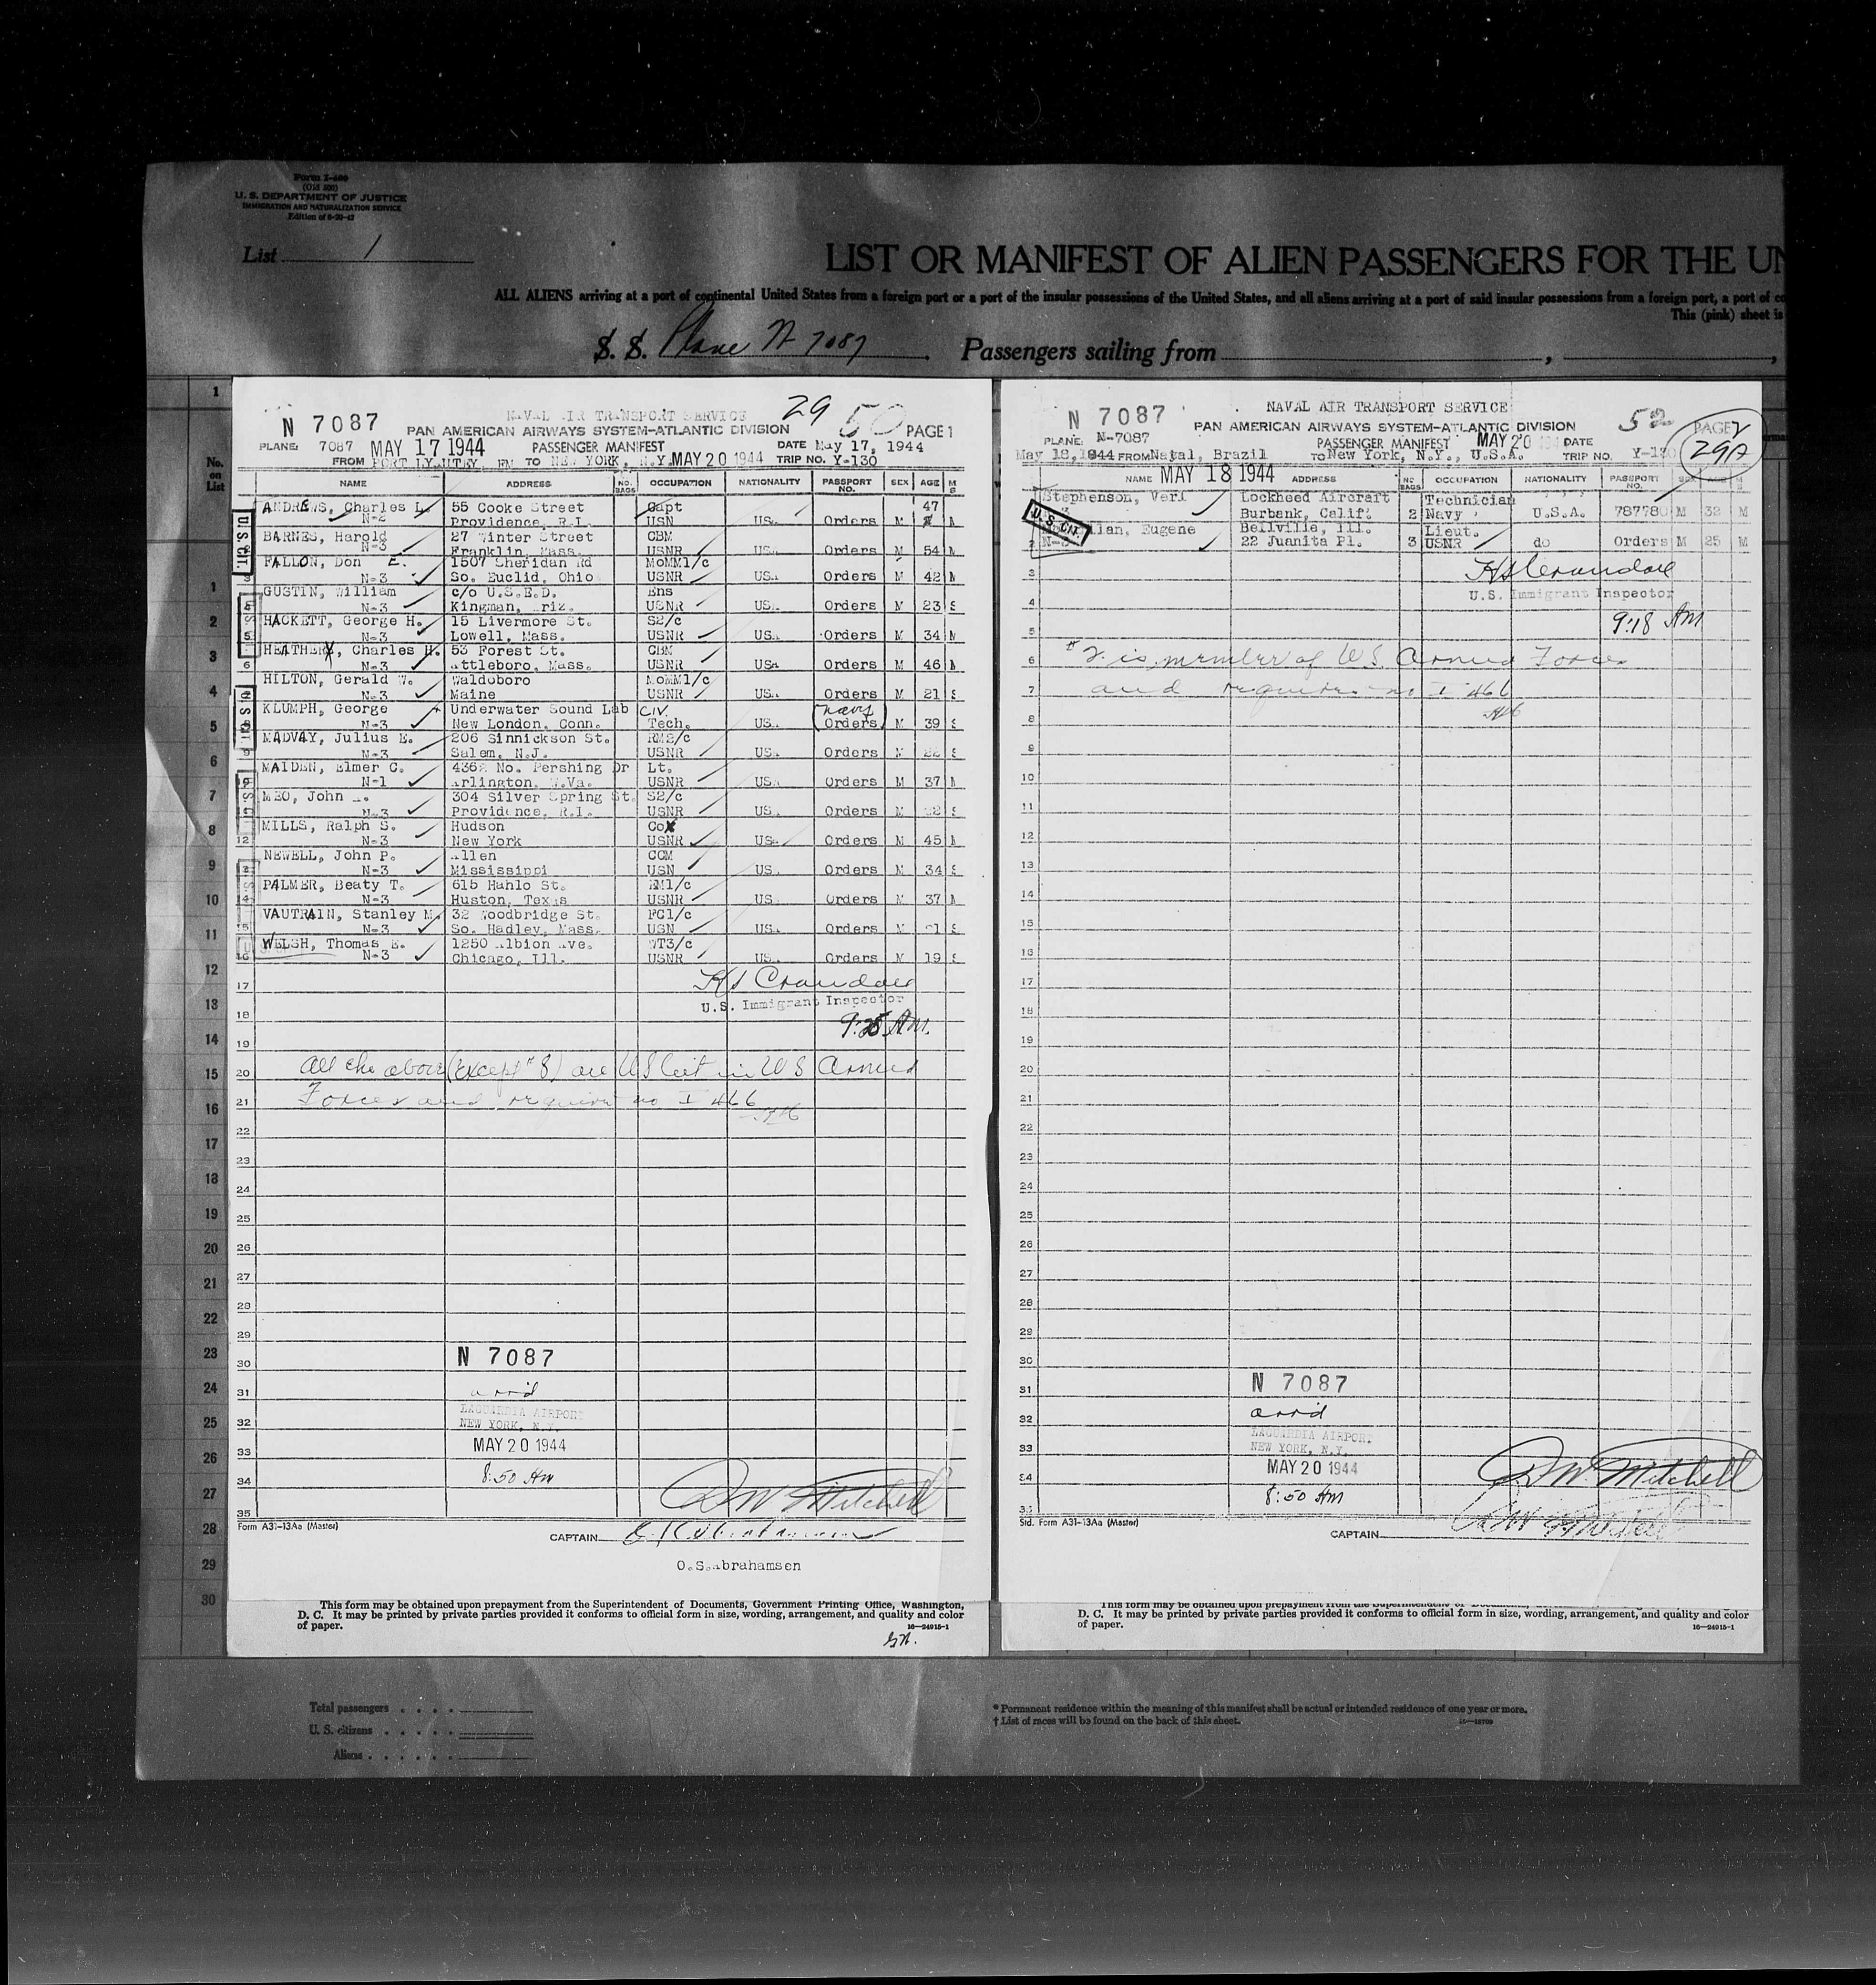 Form I-400
(Old 500)
U. S. DEPARTMENT OF JUSTICE
IMMIGRATION AND NATURALIZATION SERVICE
List 1
LIST OR MANIFEST OF ALIEN PASSENGERS FOR THE UN
ALL ALIENS arriving at a port of continental United States from a foreign port or a port of the insular possessions of the United States, and all aliens arriving at a port of said insular possessions from a foreign port, a port of co
This (pink) sheet is
S. S. Plane N 7087. Passengers sailing from , ,
No. on List
N 7087 NAVAL AIR TRANSPORT SERVICE 29 50
PAN AMERICAN AIRWAYS SYSTEM—ATLANTIC DIVISION PAGE 1
PLANE: 7087 MAY 17 1944 PASSENGER MANIFEST DATE May 17, 1944
FROM PORT LYAUTEY, FM TO NEW YORK, N.Y. MAY 20 1944 TRIP NO. Y-130
NAME ADDRESS NO. BAGS OCCUPATION NATIONALITY PASSPORT NO. SEX AGE M S
ANDREWS, Charles L. 55 Cooke Street Capt 47
N-2 Providence, R.I. USN US Orders M M
BARNES, Harold 27 Winter Street CBM
N-3 Franklin, Mass. USNR US Orders M 54 M
FALLON, Don E. 1507 Sheridan Rd MoMM1/c
3 N-3 So. Euclid, Ohio USNR US Orders M 42 M
GUSTIN, William c/o U.S.E.D. Ens
N-3 Kingman, riz. USNR US Orders M 23 S
HACKETT, George H. 15 Livermore St. S2/c
5 N-3 Lowell, Mass. USNR US Orders M 34 M
HEATHERY, Charles H. 53 Forest St. CBM
6 N-3 ttleboro, Mass. USNR USA Orders M 46 M
HILTON, Gerald W. Waldoboro MoMM1/c
N-3 Maine USNR US Orders M 21 S
KLUMPH, George Underwater Sound Lab CIV. Navy
8 N-3 New London, Conn. Tech. US Orders M 39 S
MADVAY, Julius E. 206 Sinnickson St. RM2/c
9 N-3 Salem, N.J. USNR US Orders M 22 S
MAIDEN, Elmer C. 4362 No. Pershing Dr Lt.
N-1 rlington, W.Va. USNR US Orders M 37 M
MEO, John 304 Silver Spring St. S2/c
N-3 Providence, R.I. USNR US Orders M S
MILLS, Ralph S. Hudson Cox
12 N-3 New York USNR US Orders M 45 M
NEWELL, John P. llen CCM
N-3 Mississippi USN US Orders M 34 S
PALMER, Beaty T. 615 Hahlo St. RM1/c
14 N-3 Huston, Texas USNR US Orders M 37 M
VAUTRAIN, Stanley M. 32 Woodbridge St. FC1/c
15 N-3 So. Hadley, Mass. USN US Orders M 21 S
WELSH, Thomas E. 1250 lbion ve. WT3/c
16 N-3 Chicago, Ill. USNR US Orders M 19 S
U.S. CIT.
HS Crandall
17
U.S. Immigrant Inspector
18
9:25 AM.
19
20 All the above (except #8) are US Cit in U S Armed
21 Forces and require no I 466
22
23
24
25
26
27
28
29
30 N 7087
31 arrd
LAGUARDIA AIRPORT
32 NEW YORK, N.Y.
33 MAY 20 1944
34 8:50 AM
DW Mitchell
35
Form A31-13Aa (Master)
CAPTAIN
O.S. brahamsen
This form may be obtained upon prepayment from the Superintendent of Documents, Government Printing Office, Washington,
D. C. It may be printed by private parties provided it conforms to official form in size, wording, arrangement, and quality and color
of paper. 16—24915-1
N 7087 NAVAL AIR TRANSPORT SERVICE 52
PAN AMERICAN AIRWAYS SYSTEM—ATLANTIC DIVISION PAGE
PLANE: N-7087 PASSENGER MANIFEST MAY 20 1944 DATE 29A
May 18, 1944 FROM Natal, Brazil TO New York, N.Y., U.S.A. TRIP NO. Y-130
NAME MAY 18 1944 ADDRESS NO BAGS OCCUPATION NATIONALITY PASSPORT NO. SEX AGE M S
Stephenson, Verl Lockheed Aircraft Technician
Burbank, Calif. 2 Navy U.S.A. 787780 M 32 M
U.S. CIT.
llan, Eugene Bellville, Ill. Lieut.
2 N-3 22 Juanita Pl. 3 USNR do Orders M 25 M
3 HS Crandall
4 U.S. Immigrant Inspector
5 9:18 AM
6 #2 is member of US Armed Forces
7 and requires no I 466
8
9
10
11
12
13
14
15
16
17
18
19
20
21
22
23
24
25
26
27
28
29
30
31 N 7087
32 arrd
LAGUARDIA AIRPORT
33 NEW YORK, N.Y.
34 MAY 20 1944
8:50 AM
DW Mitchell
35
Std. Form A31-13Aa (Master)
CAPTAIN
This form may be obtained upon prepayment from the Superintendent of Documents,
D. C. It may be printed by private parties provided it conforms to official form in size, wording, arrangement, and quality and color
of paper. 16—24915-1
Total passengers
U. S. citizens
Aliens
* Permanent residence within the meaning of this manifest shall be actual or intended residence of one year or more.
† List of races will be found on the back of this sheet.